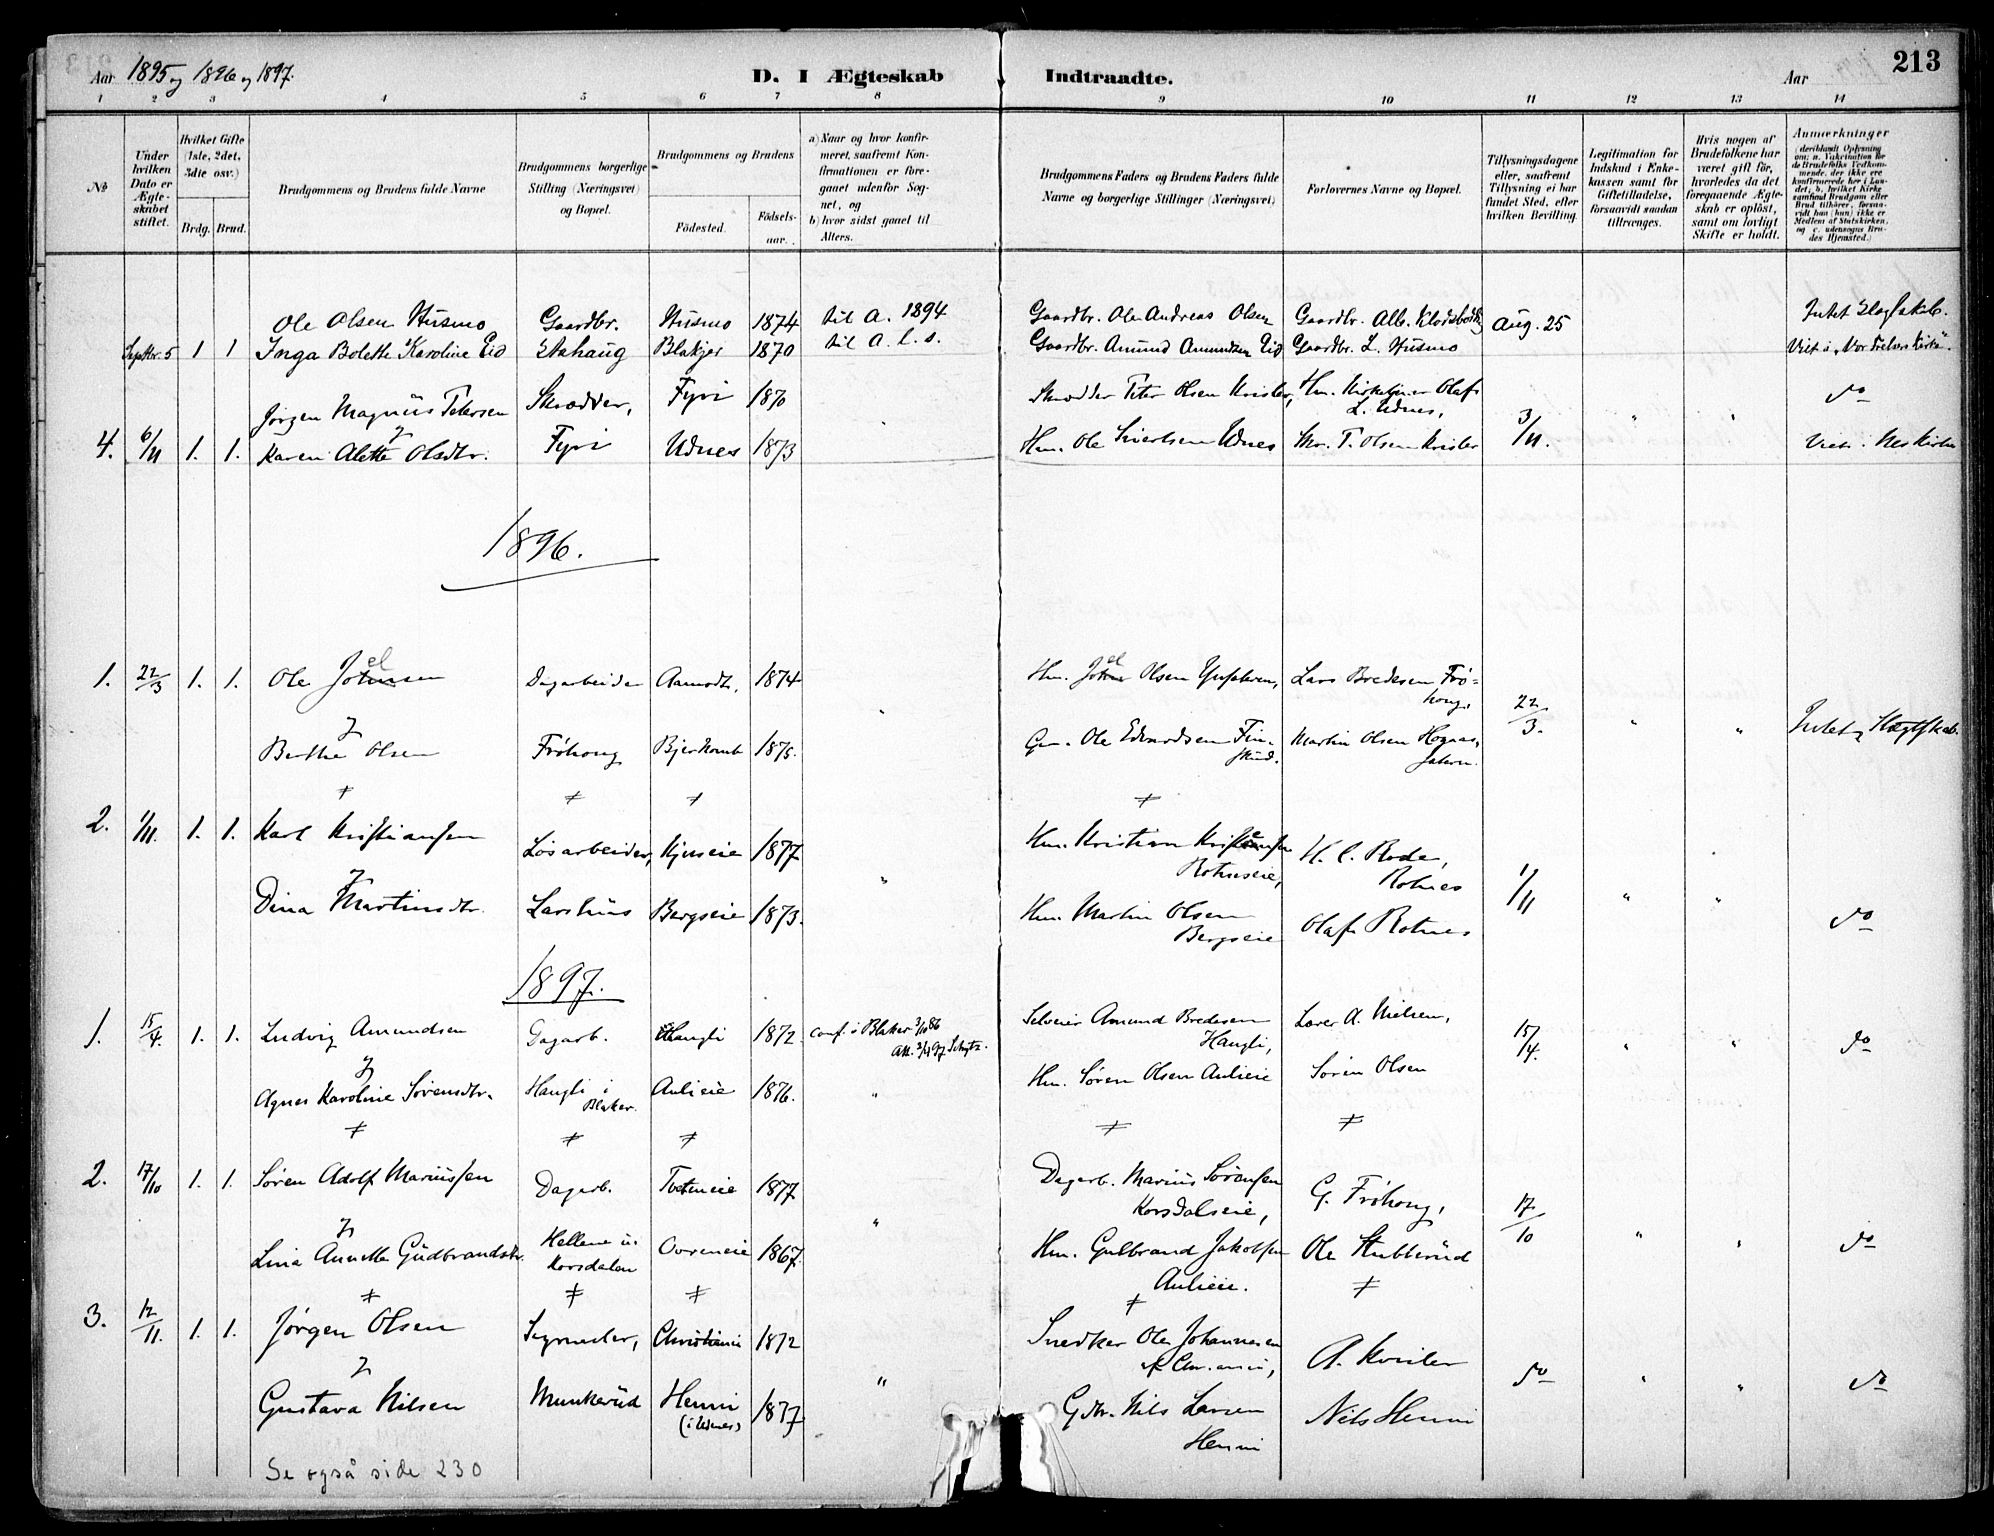 Aar 1895 og 1896 og 1897.
D. I Ægteskab Indtraadte.
Aar 213
1 2 3 4 5 6 7 8 9 10 11 12 13 14
№
Under hvilken Dato er Ægteskabet stiftet.
Hvilket Gifte (1ste, 2det, 3die osv.)
Brdg. Brud.
Brudgommens og Brudens fulde Navne
Brudgommens borgerlige Stilling (Næringsvei) og Bopæl.
Brudgommens og Brudens
Fødested. Fødselsaar.
a) Naar og hvor konfirmeret, saafremt Konfirmationen er foregaaet udenfor Sognet, og
b) hvor sidst gaaet til Alters.
Brudgommens Faders og Brudens Faders fulde Navne og borgerlige Stillinger (Næringsvei)
Forlovernes Navne og Bopæl.
Tillysningsdagene eller, saafremt Tillysning ei har fundet Sted, efter hvilken Bevilling.
Legitimation for Indskud i Enkekassen samt for Giftetilladelse, forsaavidt saadan tiltrænges.
Hvis nogen af Brudefolkene har været gift før, hvorledes da det foregaaende Ægteskab er opløst, samt om lovligt Skifte er holdt.
Anmærkninger
(deriblandt Oplysning om: a. Vakcination for de Brudefolks Vedkommende, der ikke ere konfirmerede her i Landet; b. hvilket Kirkesamfund Brudgom eller Brud tilhører, forsaavidt han (hun) ikke er Medlem af Statskirken, og c. udensogns Brudes Hjemsted.)
Ole Olsen Husmo Gaardbr. Husmo 1874 til A. 1894 Gaardbr. Ole Andreas Olsen Gaardbr. Alb. Aug. 25 Intet Slagtskab.
Septbr. 5 1 1 Inga Bolette Karoline Eid Stahaug Blakjer 1870 til A. l. s. Gaardbr. Amund Amundsen Eid Gaardbr. L. Husmo Viet i "Vor Frelsers Kirke".
Jørgen Magnus Petersen Skrædder, Fyri 1870 Skrædder Peter Olsen Kvisler, Hm. Kirketjener Olaf L. Udnes, do
4. 6/11 1. 1. Karen Alette Olsdtr. Fyri Udnes 1873 Hm. Ole Sivertsen Udnes Skr. P. Olsen Kvisler 3/11. " " Viet i Nes Kirke
1896.
1. 22/3 1. 1. Ole Joelsen Dagarbeider Aamodt, 1874 " Hm. Joel Olsen Lars Bredesen Frøhoug, 22/3. " " Intet Slægtskab.
Berthe Olsen Frøhoug Bjerkomb 1875. Gm. Ole Edvardsen Finskud. Martin Olsen
2. 1/11. 1. 1. Karl Kristiansen Løsarbeider, Kjuseie 1877 " Hm. Kristian Kristensen Rotneseie, H. C. Rode, Rotnes 1/11 " "
Dina Martinsdtr. Larshus Bergseie 1873. Hm. Martin Olsen Bergseie Olaf Rotnes do
1897.
1. 15/4. 1. 1. Ludvig Amundsen Dagarb. Haugli 1872. conf. i Blaker 3/10 86 Att. 3/4 97 Schytz. Selveier Amund Bredesen Haugli, Lærer A. Nielsen, 15/4. " " do
Agnes Karoline Sørensdtr. Haugli i Blaker. Aulieie 1876. " Hm. Søren Olsen Aulieie Søren Olsen
2. 17/10 1. 1. Søren Adolf Mariussen Dagarb. Tveteneie 1877 " Dagarb. Marius Sørensen Korsdalseie, G. Frøhoug, 17/10 " "
Lina Annette Gudbrandsdtr. Hellene u. Korsdalen Ovreneie 1867. Hm. Gulbrand Jakobsen Aulieie. Ole Stubberud do
3. 12/11. 1. 1. Jørgen Olsen Christiania 1872 Snedker Ole Johannesen af Chr.ania, A. Kvisler
Gustava Nilsen Munkerud Henni (i Udnes) 1877 " Gdbr. Nils Larsen Henni Nils Henni do " " do
Se også side 230